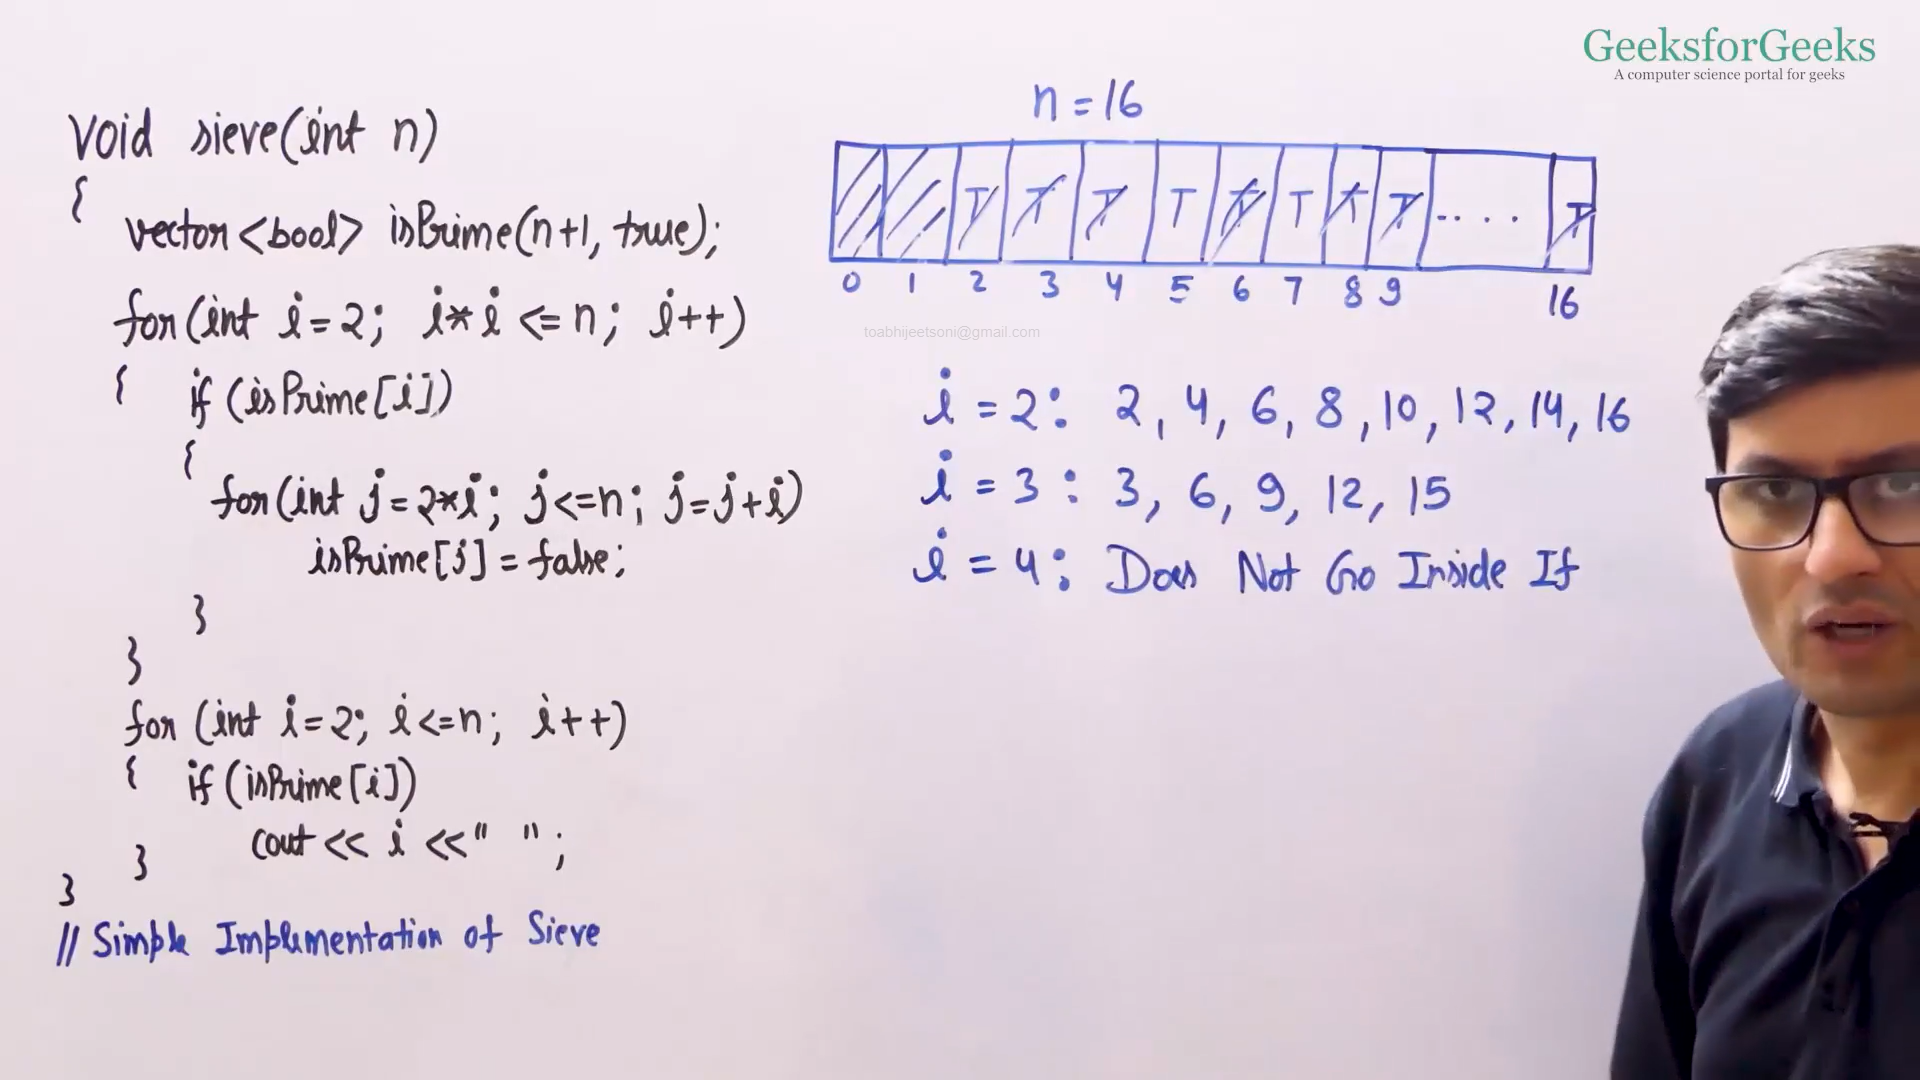 GeeksforGeeks
A computer science portal for geeks
void sieve(int n)
{
vector<bool> isPrime(n+1, true);
for(int i=2; i*i <= n; i++)
{ if (isPrime[i])
{
for(int j=2*i; j<=n; j=j+i)
isPrime[j] = false;
}
}
for (int i=2; i<=n; i++)
{ if (isPrime[i])
cout << i <<" ";
}
}
// Simple Implementation of Sieve
n = 16
T T T T T T T T .... T
0 1 2 3 4 5 6 7 8 9 16
toabhijeetsoni@gmail.com
i = 2: 2, 4, 6, 8, 10, 12, 14, 16
i = 3: 3, 6, 9, 12, 15
i = 4: Does Not Go Inside If